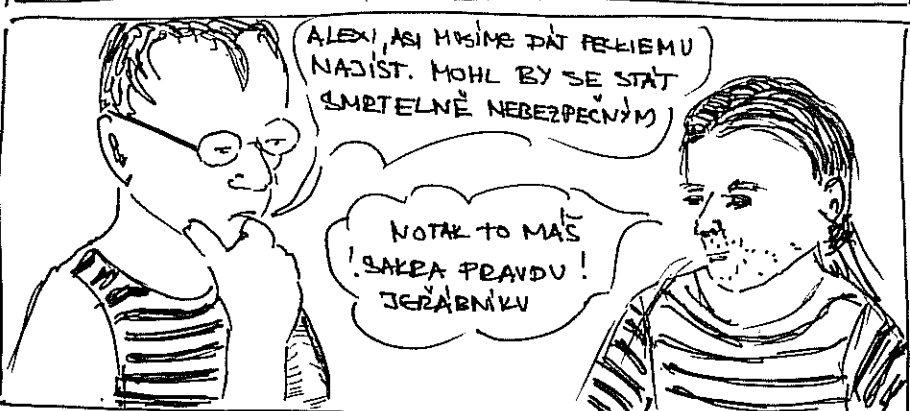 ALEXI, ASI MUSÍME DÁT PECKIEMU
NAJÍST. MOHL BY SE STÁT
SMRTELNĚ NEBEZPEČNÝM
NOTAK TO MÁŠ
! SAKRA PRAVDU !
JEŘÁBNÍKU